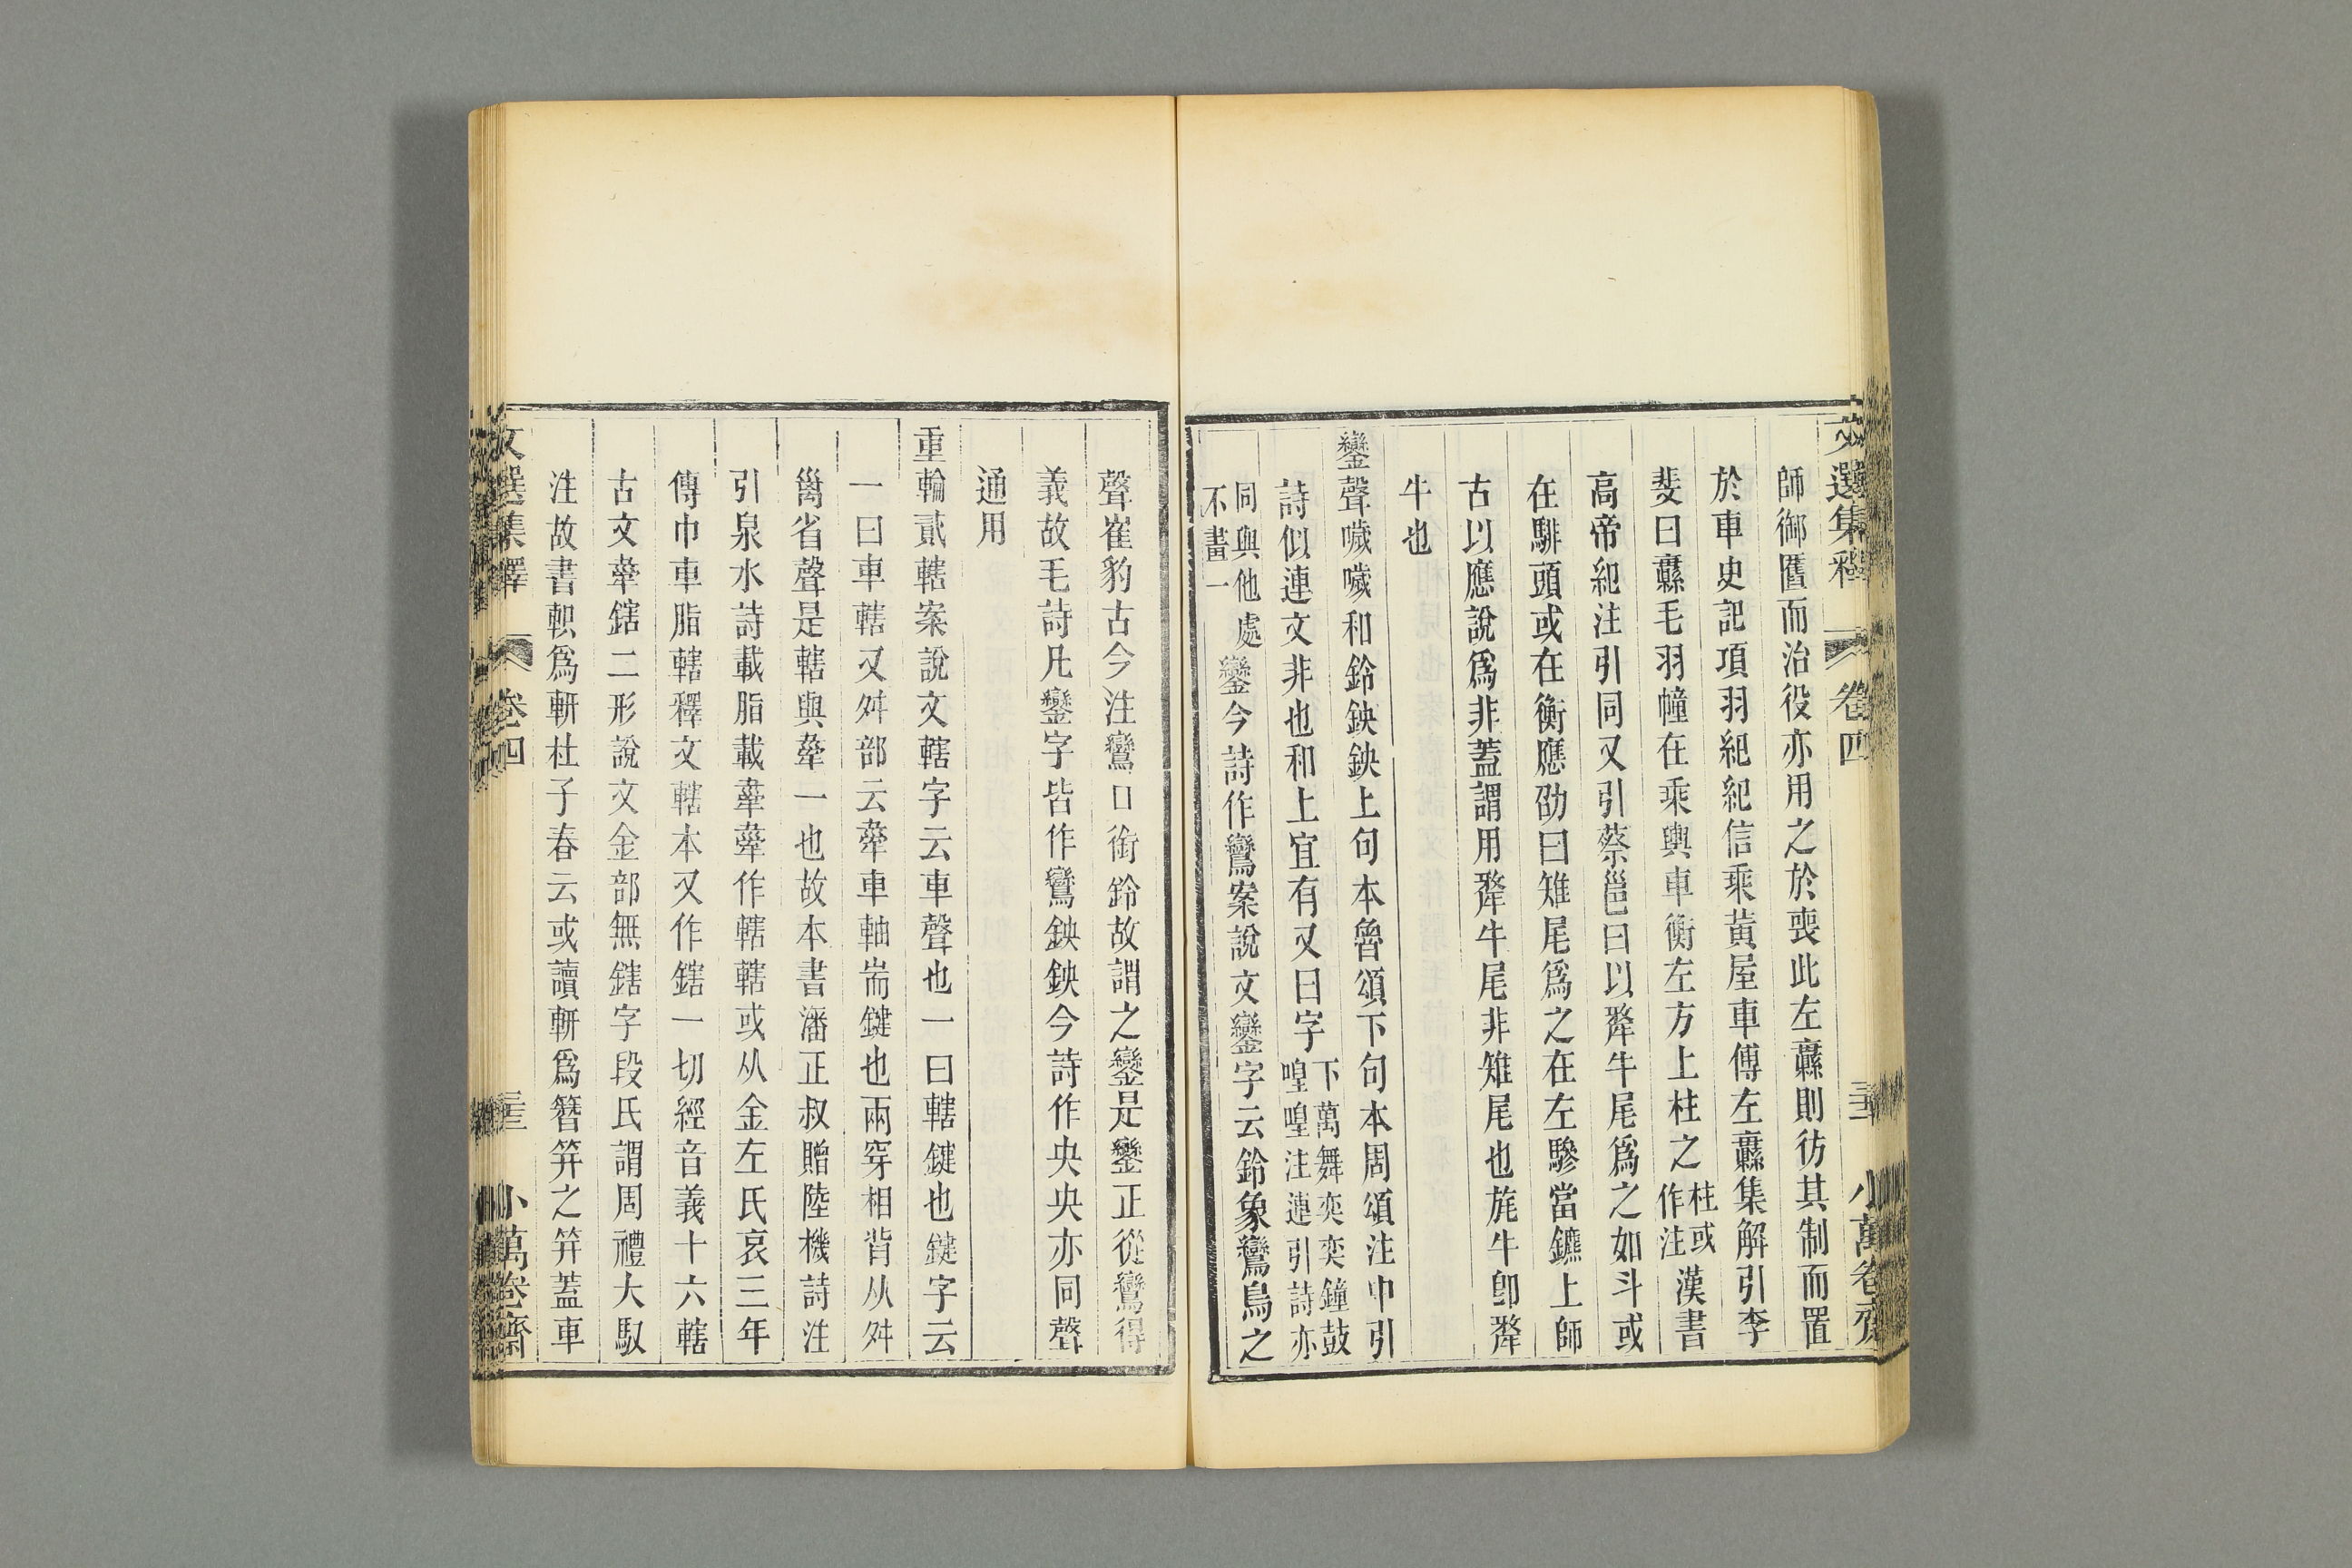 文選集釋 卷四 小萬卷齋
師御匶而治役亦用之於喪此左纛則彷其制而置
於車史記項羽紀紀信乘黃屋車傅左纛集解引李
斐曰纛毛羽幢在乘輿車衡左方上柱之柱或作注漢書
高帝紀注引同又引蔡邕曰以犛牛尾爲之如斗或
在騑頭或在衡應劭曰雉尾爲之在左驂當鑣上師
古以應說爲非蓋謂用犛牛尾非雉尾也旄牛卽犛
牛也
鑾聲噦噦和鈴鉠鉠上句本魯頌下句本周頌注中引
詩似連文非也和上宜有又曰字下萬舞奕奕鐘鼓喤喤注連引詩亦
同與他處不畫一鑾今詩作鸞案說文鑾字云鈴象鸞鳥之
聲崔豹古今注鸞口銜鈴故謂之鑾是鑾正從鸞得
義故毛詩凡鑾字皆作鸞鉠鉠今詩作央央亦同聲
通用
重輪貳轄案說文轄字云車聲也一曰轄鍵也鍵字云
一曰車轄又舛部云舝車軸耑鍵也兩穿相背从舛
省聲是轄與舝一也故本書潘正叔贈陸機詩注
引泉水詩載脂載舝舝作轄轄或从金左氏哀三年
傳巾車脂轄釋文轄本又作鎋一切經音義十六轄
古文舝鎋二形說文金部無鎋字段氏謂周禮大馭
注故書軹爲軿杜子春云或讀軿爲簪笄之笄蓋車
文選集釋 卷四 小萬卷齋